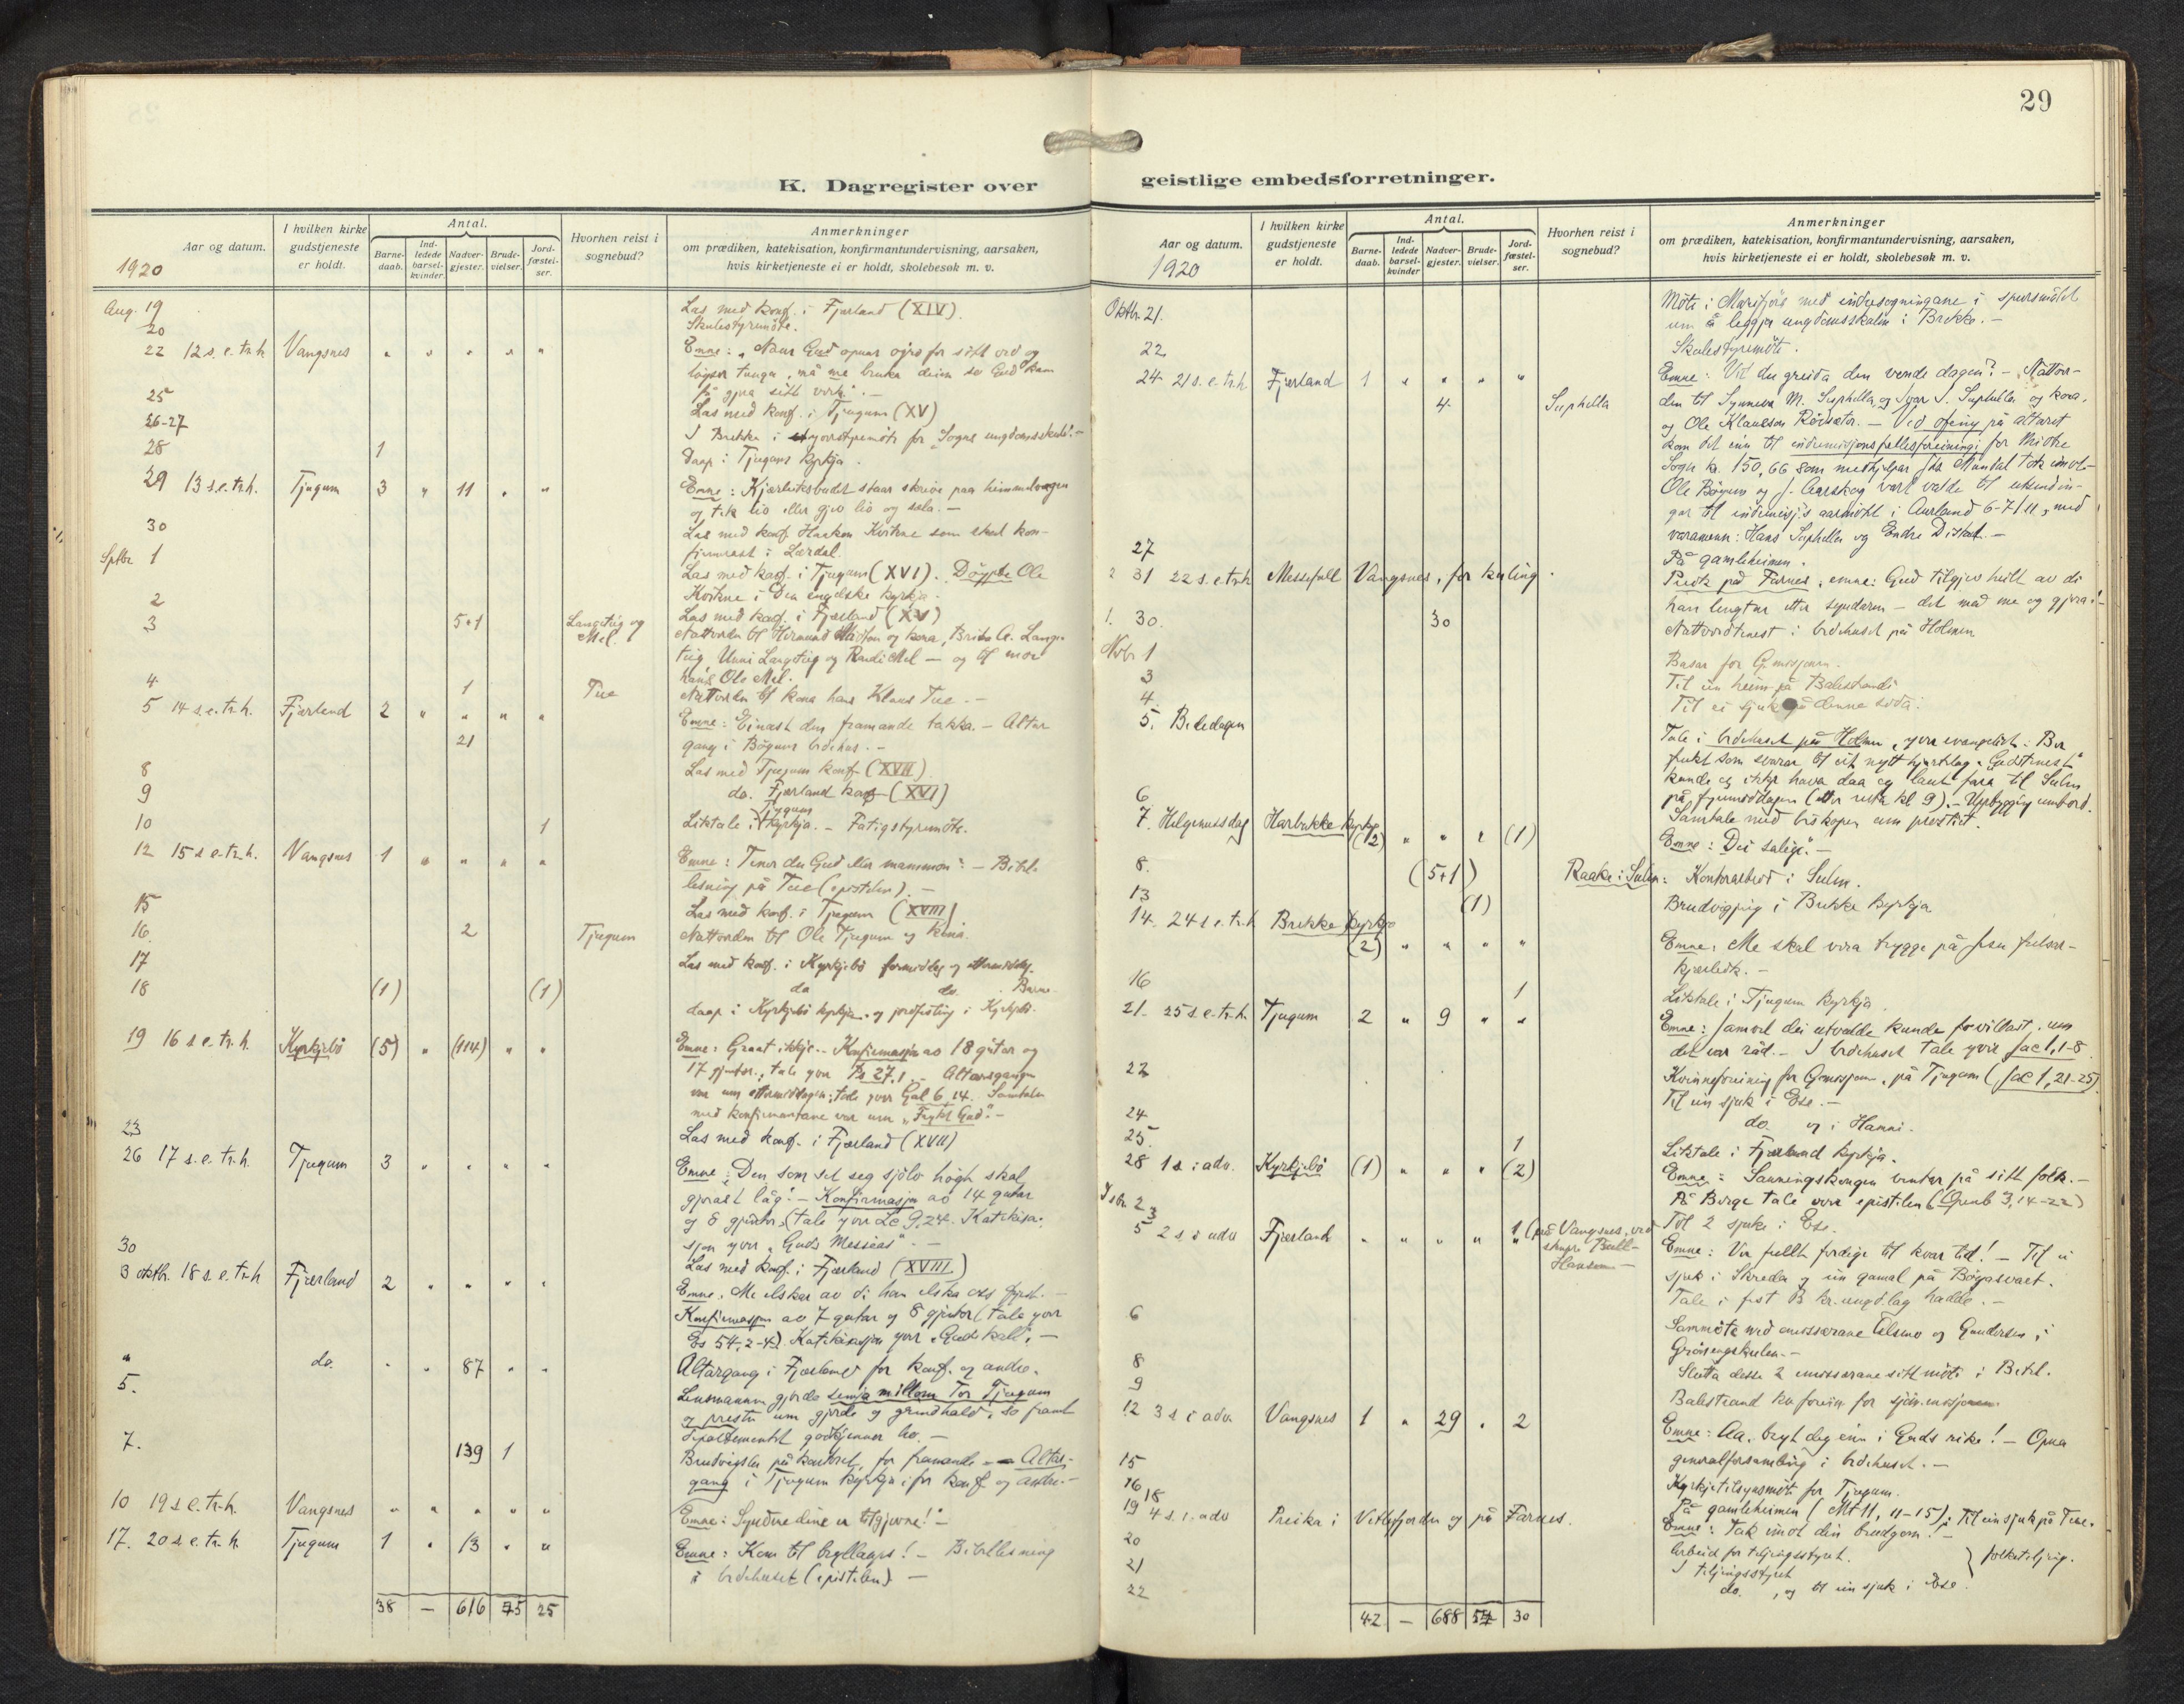 29
K. Dagregister over
geistlige embedsforretninger.
Aar og datum.
I hvilken kirke gudstjeneste er holdt.
Antal.
Barne-daab.
Ind-ledede barsel-kvinder.
Nadver-gjester.
Brude-vielser.
Jord-fæstel-ser.
Hvorhen reist i sognebud?
Anmerkninger
om prædiken, katekisation, konfirmantundervisning, aarsaken,
hvis kirketjeneste ei er holdt, skolebesøk m. v.
1920
Aug. 19 Las med konf. i Fjærland (XIV).
20 Skulestyremöte.
22 12 s. e. tr.h. Vangsnes " " " " " Emne: "Naar Gud opnar öyro for sitt ord og
löyser tunga, må me bruka deim so Gud kann
få gjera sitt verk". -
25 Las med konf. i Tjugum (XV)
26-27 I Brekke i styremöte for "Sogns ungdomsskule". -
28 1 Daap i Tjugum kyrkja.
29 13 s.e.tr.h. Tjugum 3 " 11 " " Emne: Kjærleiksbodet staar skrive paa himmelvegen
og tek liv eller gjev liv og sæla. -
30 Las med konf. Haakon Kvikne som skal kon-
firmerast i Lærdal.
Sptbr 1 Las med konf. i Tjugum (XVI). Döypte Ole
Kvikne i den engelske kyrkja.
2 Las med konf. i Fjærland (XV)
3 5+1 Langeteig og Mel. Nattverden til Hermund og kona, Brita A. Lange-
teig, Unni Langeteig og Randi Mel - og til mor
hans Ole Mel.
4. 1 Tue Nattverden til kona hans Klaus Tue. -
5 14 s.e.tr.h. Fjærland 2 " " " " Emne: Einast den framande takka. - Altar
21 gang i Böyums bedehus. -
8 Las med Tjugum konf. (XVII)
9 do. Fjærland konf. (XVI)
10 1 Liktale i Tjugum kyrkja. - Fatigstyremöte.
12 15 s e.tr.h. Vangsnes 1 " " " " Emne: Tener du Gud eller mammon? - Bibel-
lesning på Tue (epistelen). -
15 Las med konf. i Tjugum (XVIII).
16. 2 Tjugum Nattverden til Ole Tjugum og kona.
17 Las med konf. i Kyrkjebö formiddag og ettermiddag.
18 (1) (1) do do. Barne-
daap i Kyrkjebö kyrkja og jordfesting i Kyrkjebö.
19 16 s e. tr. h. Kyrkjebö (5) " (114) " " Emne: Graat ikkje. - Konfirmasjon av 18 gutar og
17 gjentor, tale yver Ps 27,1. - Altargangen
var um ettermiddagen; tale yver Gal 6,14. Samtalen
med konfirmantane var um "Frykt Gud". -
23 Las med konf. i Fjærland (XVII)
26 17 s.e.tr.h. Tjugum 3 " " " " Emne: "Den som set seg sjölv högh skal
gjerast låg". - Konfirmasjon av 14 gutar
og 8 gjentor, (tale yver Lc 9,24. Katekisa-
sjon yver "Guds Messias". -
30 Las med konf. i Fjærland (XVIII)
3 oktbr. 18 s.e.tr.h Fjærland 2 " " " " Emne: Me elskar av di han elska oss fyrst. -
Konfirmasjon av 7 gutar og 8 gjentor (tale yver
Es 54,2-4). Katekisasjon yver "Guds kall". -
" do. " " 87 " " Altargang i Fjærland for konf. og andre.
5. Lensmannen gjorde semja millom Tor Tjugum
og presten um gjerde og grindhald, so framt
departementet godkjenner ho. -
7. 139 1 Brudvigsla på kontoret, for framande - Altar-
gang i Tjugum kyrkja for konf. og andre. -
10 19 s e. tr. h. Vangsnes " " " " " Emne: Syndene dine er tilgjevne! -
17. 20 s. e. tr. h. Tjugum 1 " 13 " " Emne: Kom til bryllaups! - Bibellesning
i bedehuset (epistelen) -
38 - 616 25
Aar og datum.
I hvilken kirke gudstjeneste er holdt.
Antal.
Barne-daab.
Ind-ledede barsel-kvinder
Nadver-gjester.
Brude-vielser.
Jord-fæstel-ser.
Hvorhen reist i sognebud?
Anmerkninger
om prædiken, katekisation, konfirmantundervisning, aarsaken,
hvis kirketjeneste ei er holdt, skolebesøk m. v.
1920
Oktbr. 21. Möte i Marifjöra med indresogningane i spursmålet
um å leggja ungdomsskulen i Brekke. -
22 Skulestyremöte.
24 21 s. e. tr.h Fjærland 1 " " " " Emne: Vil du greida den vonde dagen? - Nattver-
4 Suphella den til Synneva M. Suphella, og Ivar S. Suphella og kona,
og Ole Klausson Rörsetær. - Ved ofring på altaret
kom det inn til indremisjonsfellesforeiningi for Midtre
Sogn kr. 150,66 som medhjelpar Mundal tok imot -
Ole Böyum og J. Aarskog vart valde til utsendin-
gar til indremisj.s aarsmöte i Aurland 6-7/11, med
varamenn: Hans Suphella og Endre Distad. -
27 På gamleheimen.
31 22 s.e.tr.h Messefall Vangsnes, for kuling. Preik på Farnes, emne: Gud tilgjev heilt av di
han lengtar etter syndaren - det med me og gjera! -
30. 30 Nattverdtenest i bedehuset på Holmen
Nvbr 1 Basar for misjonen.
3 Til ein heim på Balestrand.
4. Til ei sjuk på denne sida.
5. Bededagen Tale i bedehuset på Holmen, yver evangeliet: Ber
frukt som svarar til eit nytt hjartelag. Gudstenest
kunde eg ikkje hava daa eg laut fara til Sulen
på fyremiddagen (etter ruta kl 9). - Uppbygging umbord.
6 Samtale med biskopen um prestet.
7. Helgemessdag Harbakke kyrkje (12) " " " (1) Emne: "Dei salige". -
8. (5+1) Raake i Sulen: Kontorarbeid i Sulen.
13 (1) Brudvigjing i Brekke kyrkja
14. 24 s e. tr.h Brekke kyrkjo (2) " " " " Emne: Me skal vera trygge på Jesu frelsar-
kjærleik. -
16 1 Liktale i Tjugum kyrkja.
21. 25 s.e.tr.h Tjugum 2 " 9 " " Emne: Jamvel dei utvalde kunde forvillast, um
det var råd. - I bedehuset tale yver Jac 1,1-8
22 Kvinneforeining for misjonen, på Tjugum (Jac 1,21-25)
Til ein sjuk i Ese. -
24 do. og i Hamni.
25. 1 Liktale i Fjærland kyrkja.
28 1 s. i adv. Kyrkjebö (1) " " " (2) Emne: Sanningskongen ventar på sitt folk. -
På Berge tale yver epistelen (Openb 3,14-22)
Dsbr. 2 Til 2 sjuke i Ese.
3 1 (på Vangsnes, ved
5 2 s. i adv Fjærland " " " " " Emne: Ver fullt ferdige til kvar tid! - Til ei
Hansen - sjuk i Skreda og ein gamal på Böyasvaet.
Tale i fest B kr. ungd.lag hadde. -
6 Sammöte med emissærane Alsmo og Gundersen i
Gröneng skulen. -
8 Slutta desse 2 emissærane sitt möte i Betel.
9 Balestrand kv forein. for sjömisjonen.
12 3 s i adv. Vangsnes 1 " 29 " 2 Emne: Aa, bryt deg inn i Guds rike! - Open
generalforsamling i bedehuset. -
15 Kyrkjetilsynsmöte for Tjugum.
16 På gamleheimen (Mt 11, 11-15); Til ein sjuk på Tue.
18
19 4 s. i. adv Preika i Vetlefjorden og på Farnes. Emne: Tak imot din brudgom! -
20 Arbeid for teljingsstyret.
21 I teljingsstyret } folketeljing.
22 do., og til ein sjuk i Ese.
42 - 688 30